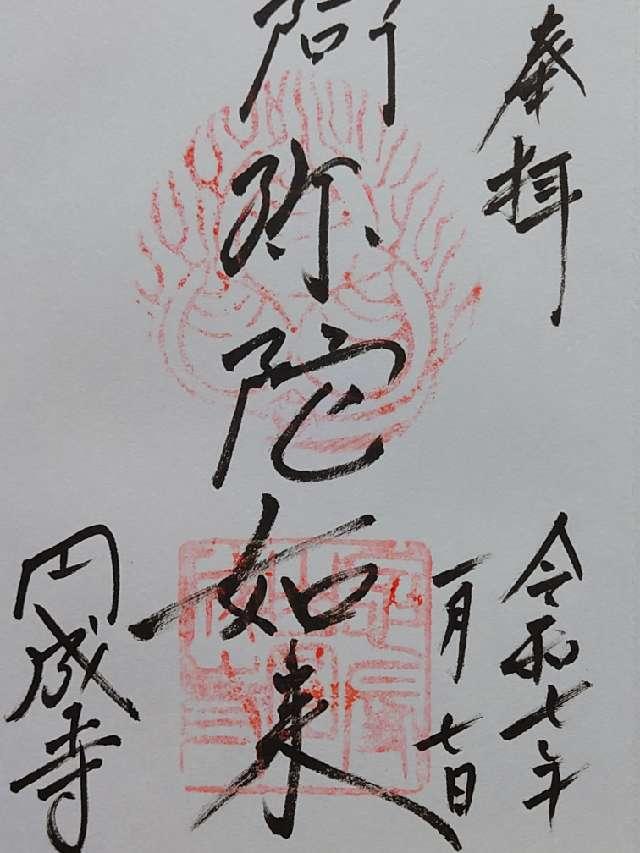 奉拝
令和七年
一月七日
阿弥陀如来
円成寺